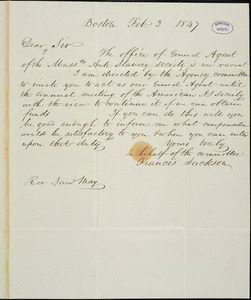 Boston Feb 3 1847
Dear Sir
The office of General Agent
of the Mass Anti Slavery Society is now vacant
I am directed by the Agency committee
to invite you to act as our General Agent until
the annual meeting of the American AS Society
with the view to continue it if we can obtain
funds If you can do this will you
be good enough to inform me what compensation
would be satisfactory to you & when you can enter
upon that duty. Yours truly
in behalf of the committee
Francis Jackson
Rev Saml May